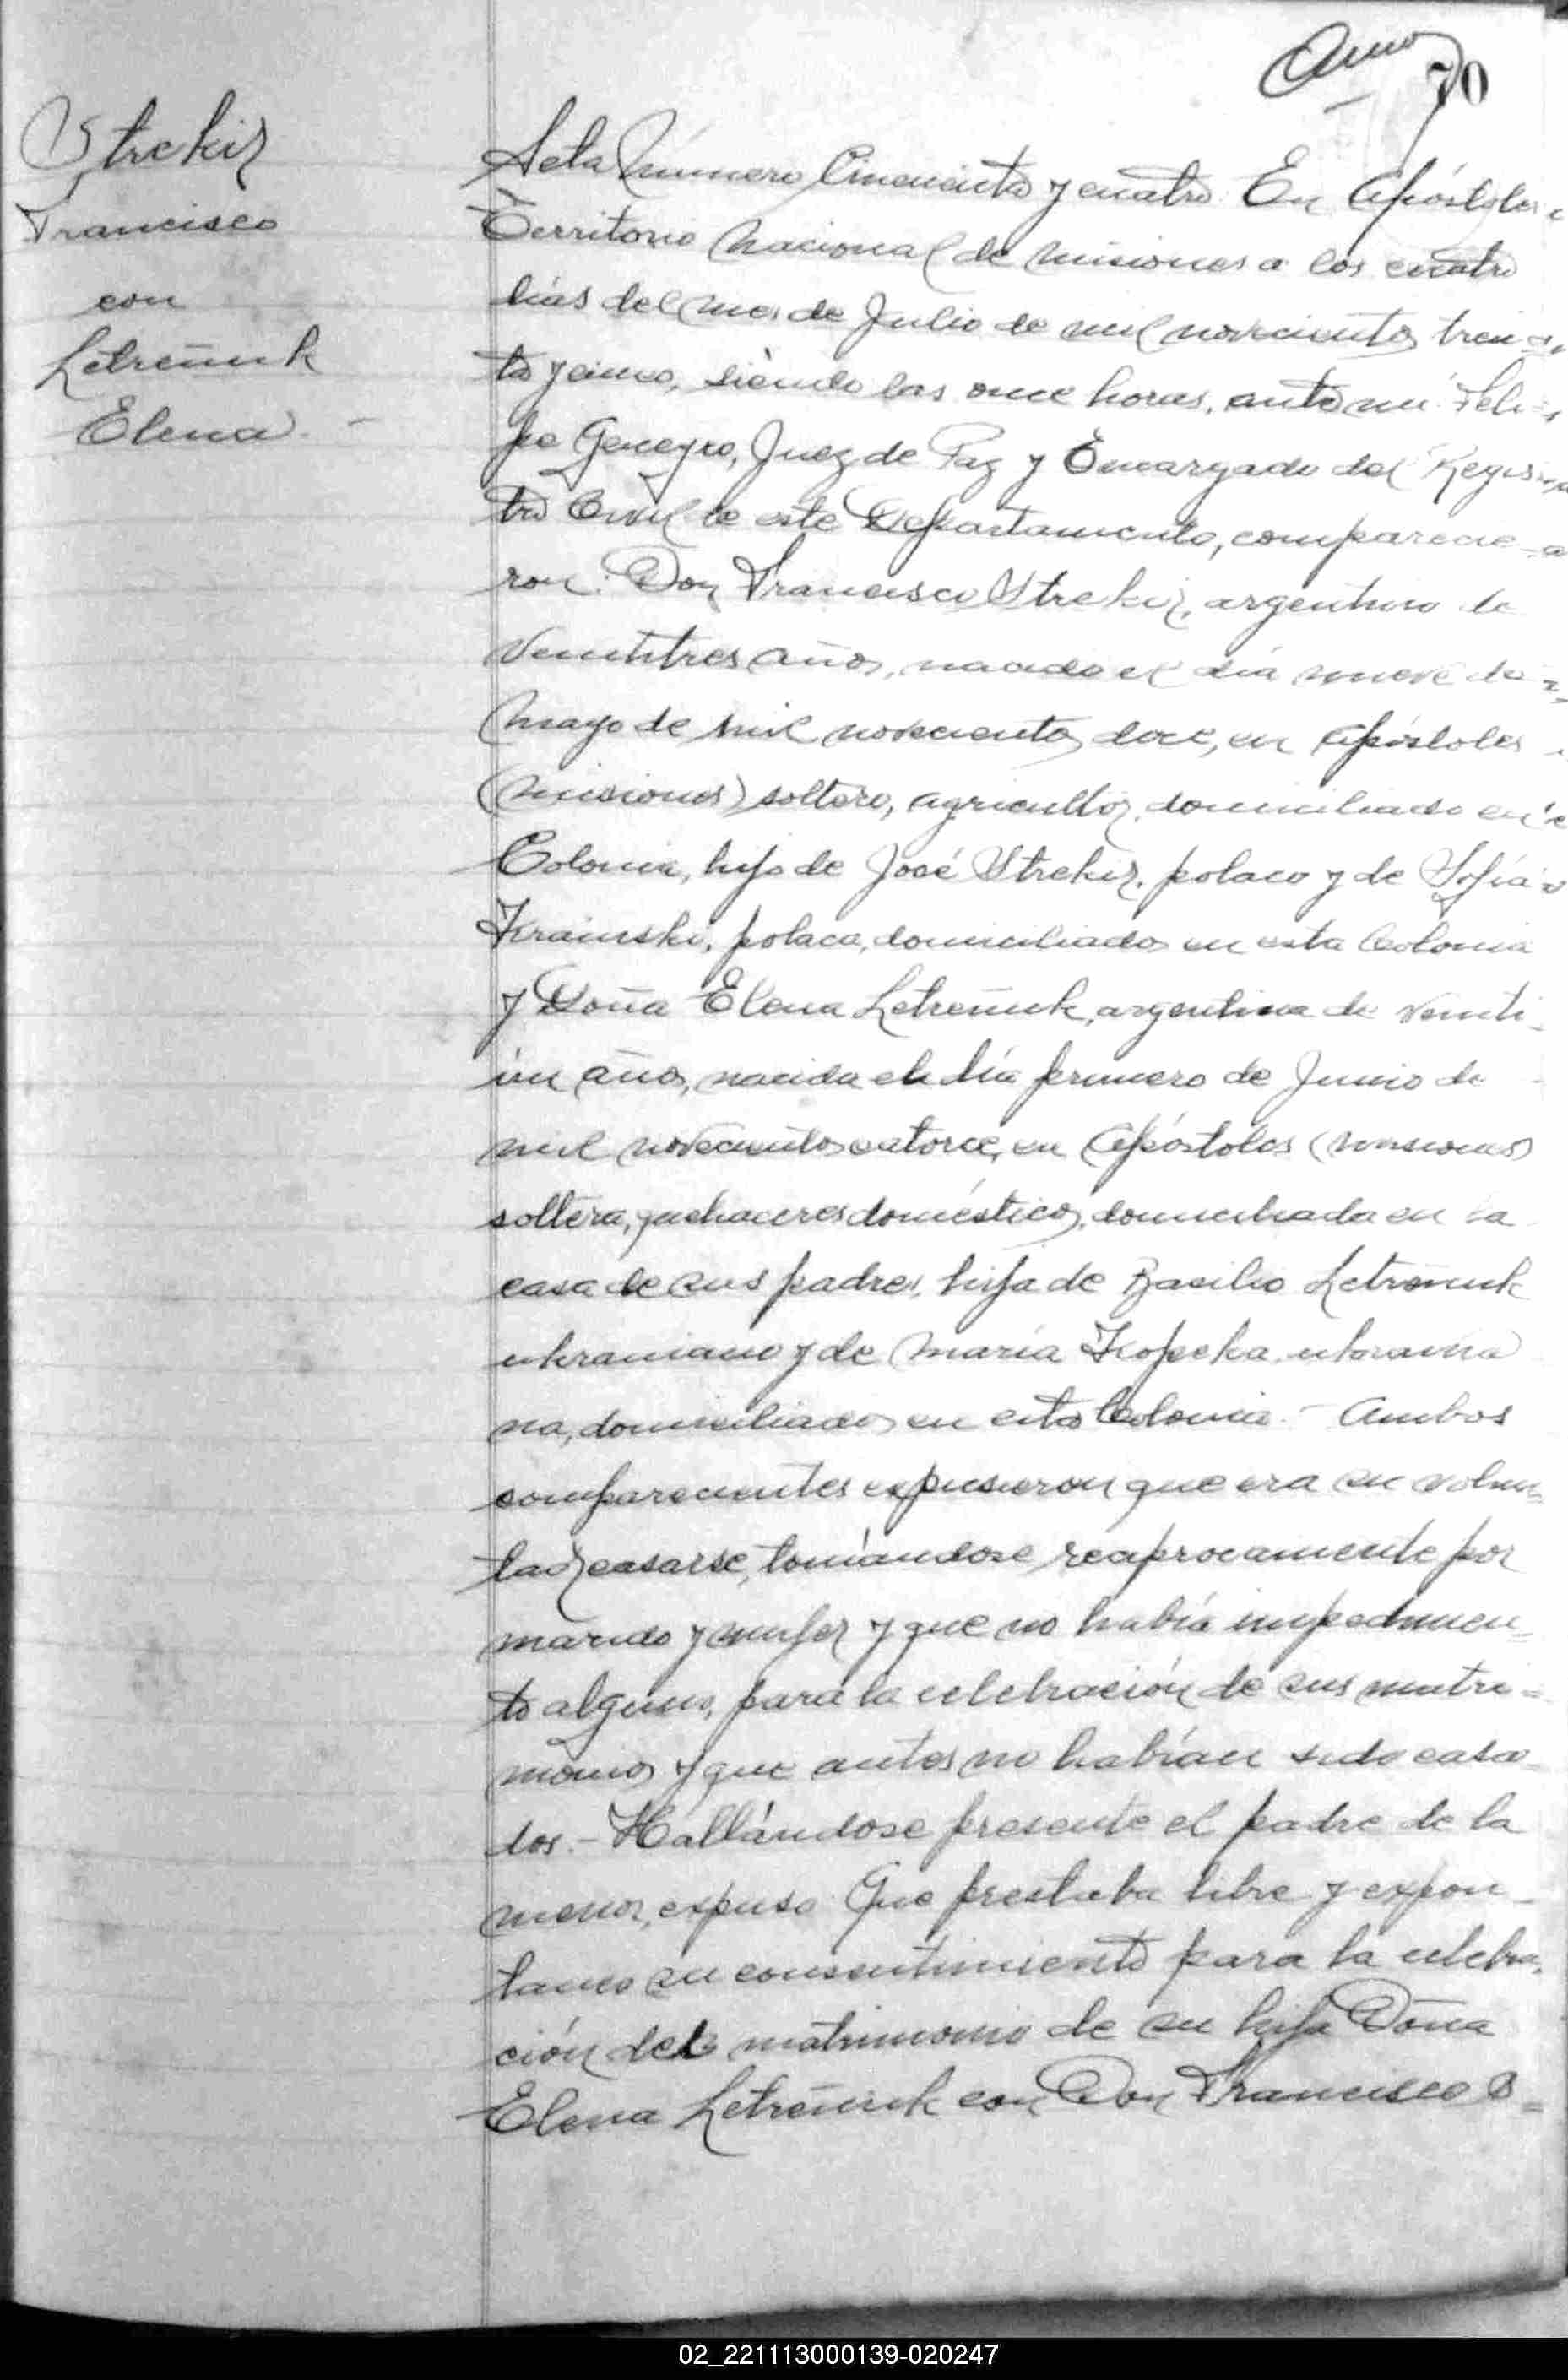 70
Strekiz
Francisco
con
Letreñuk
Elena.-
Acta Número Cincuenta y cuatro. En Apóstoles
Territorio Nacional de Misiones a los cuatro
días del mes de Julio de mil novecientos trein
ta y cinco, siendo las once horas, ante mí: Feli-
pe Geneyro, Juez de Paz y Encargado del Regis-
tro Civil de este Departamento, comparecie-
ron: Don Francisco Strekiz, argentino de
veintitres años, nacido el día nueve de
Mayo de mil novecientos doce, en Apóstoles
(Misiones) soltero, agricultor, domiciliado en
Colonia, hijo de José Strekiz, polaco y de Sofía
Krainski, polaca, domiciliados en esta Colonia
y Doña Elena Letreñuk, argentina de veinti-
ún años, nacida el día primero de Junio de
mil novecientos catorce, en Apóstoles (Misiones)
soltera, quehaceres domésticos, domiciliada en la
casa de sus padres, hija de Basilio Letreñuk
ukraniano y de María Kopecka, ukrania
na, domiciliados en esta Colonia.- Ambos
comparecientes expusieron que era su volun-
tad casarse, tomándose reciprocamente por
marido y mujer y que no había impedimen-
to alguno, para la celebración de sus matri-
monios y que antes no habían sido casa-
dos.- Hallándose presente el padre de la
menor, expuso: Que prestaba libre y expon-
taneo su consentimiento para la celebra-
ción del matrimonio de su hija Doña
Elena Letreñuk con Don Francisco S=
02_221113000139-020247